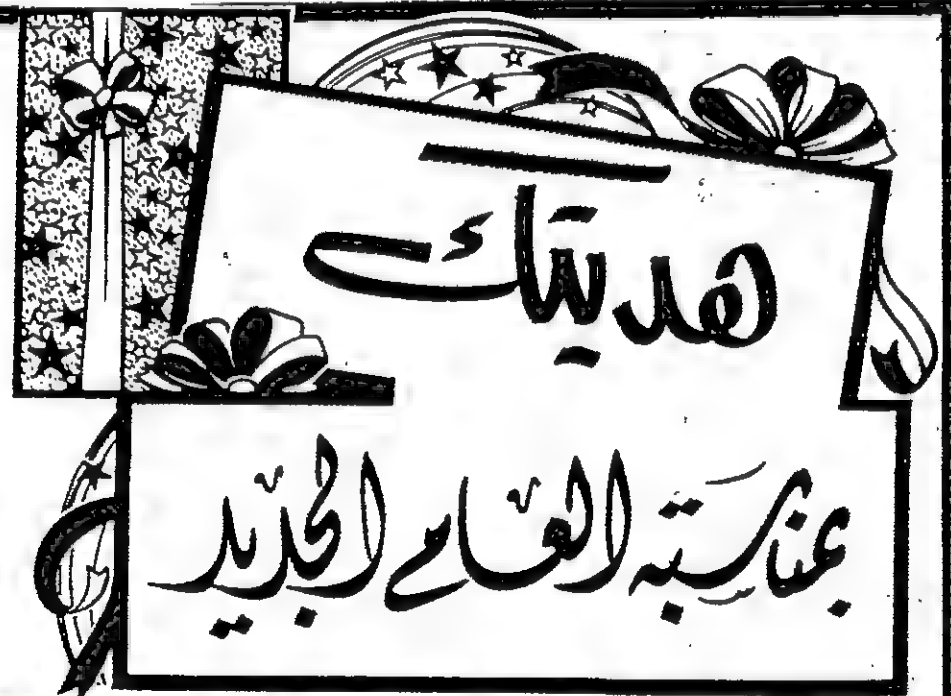 هديتك
بمناسبة العام الجديد